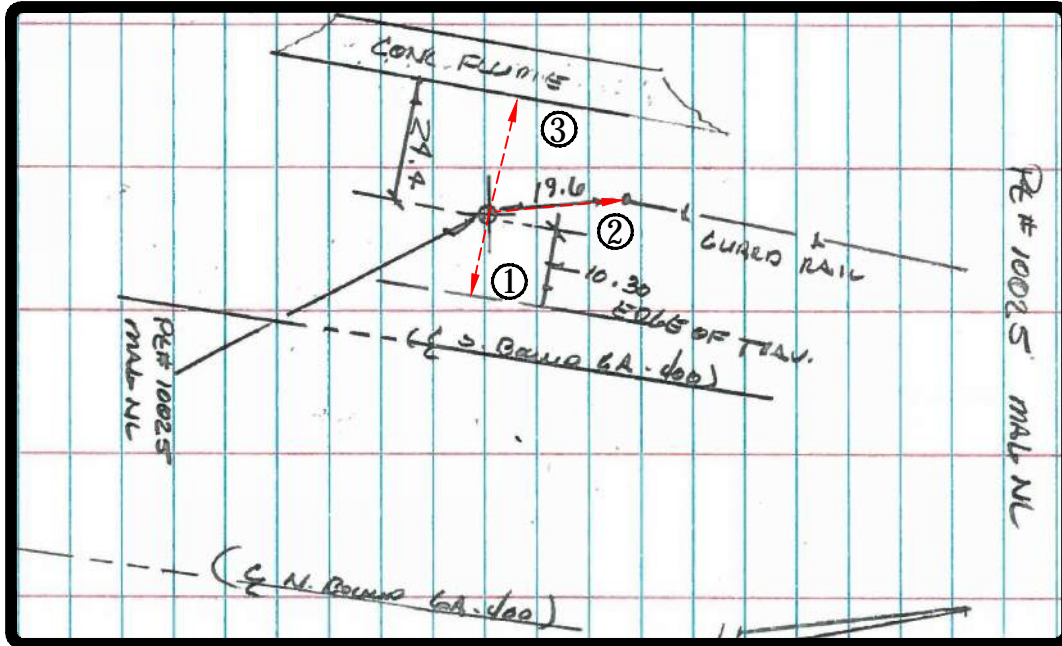 CONC FLUME
③
24.4
19.6
②
GUARD RAIL
①
10.30
EDGE OF TRAV.
(℄ S. BOUND GA. 400)
Pt# 10025
MAG NL
Pt# 10025 MAG NL
(℄ N. BOUND GA. 400)